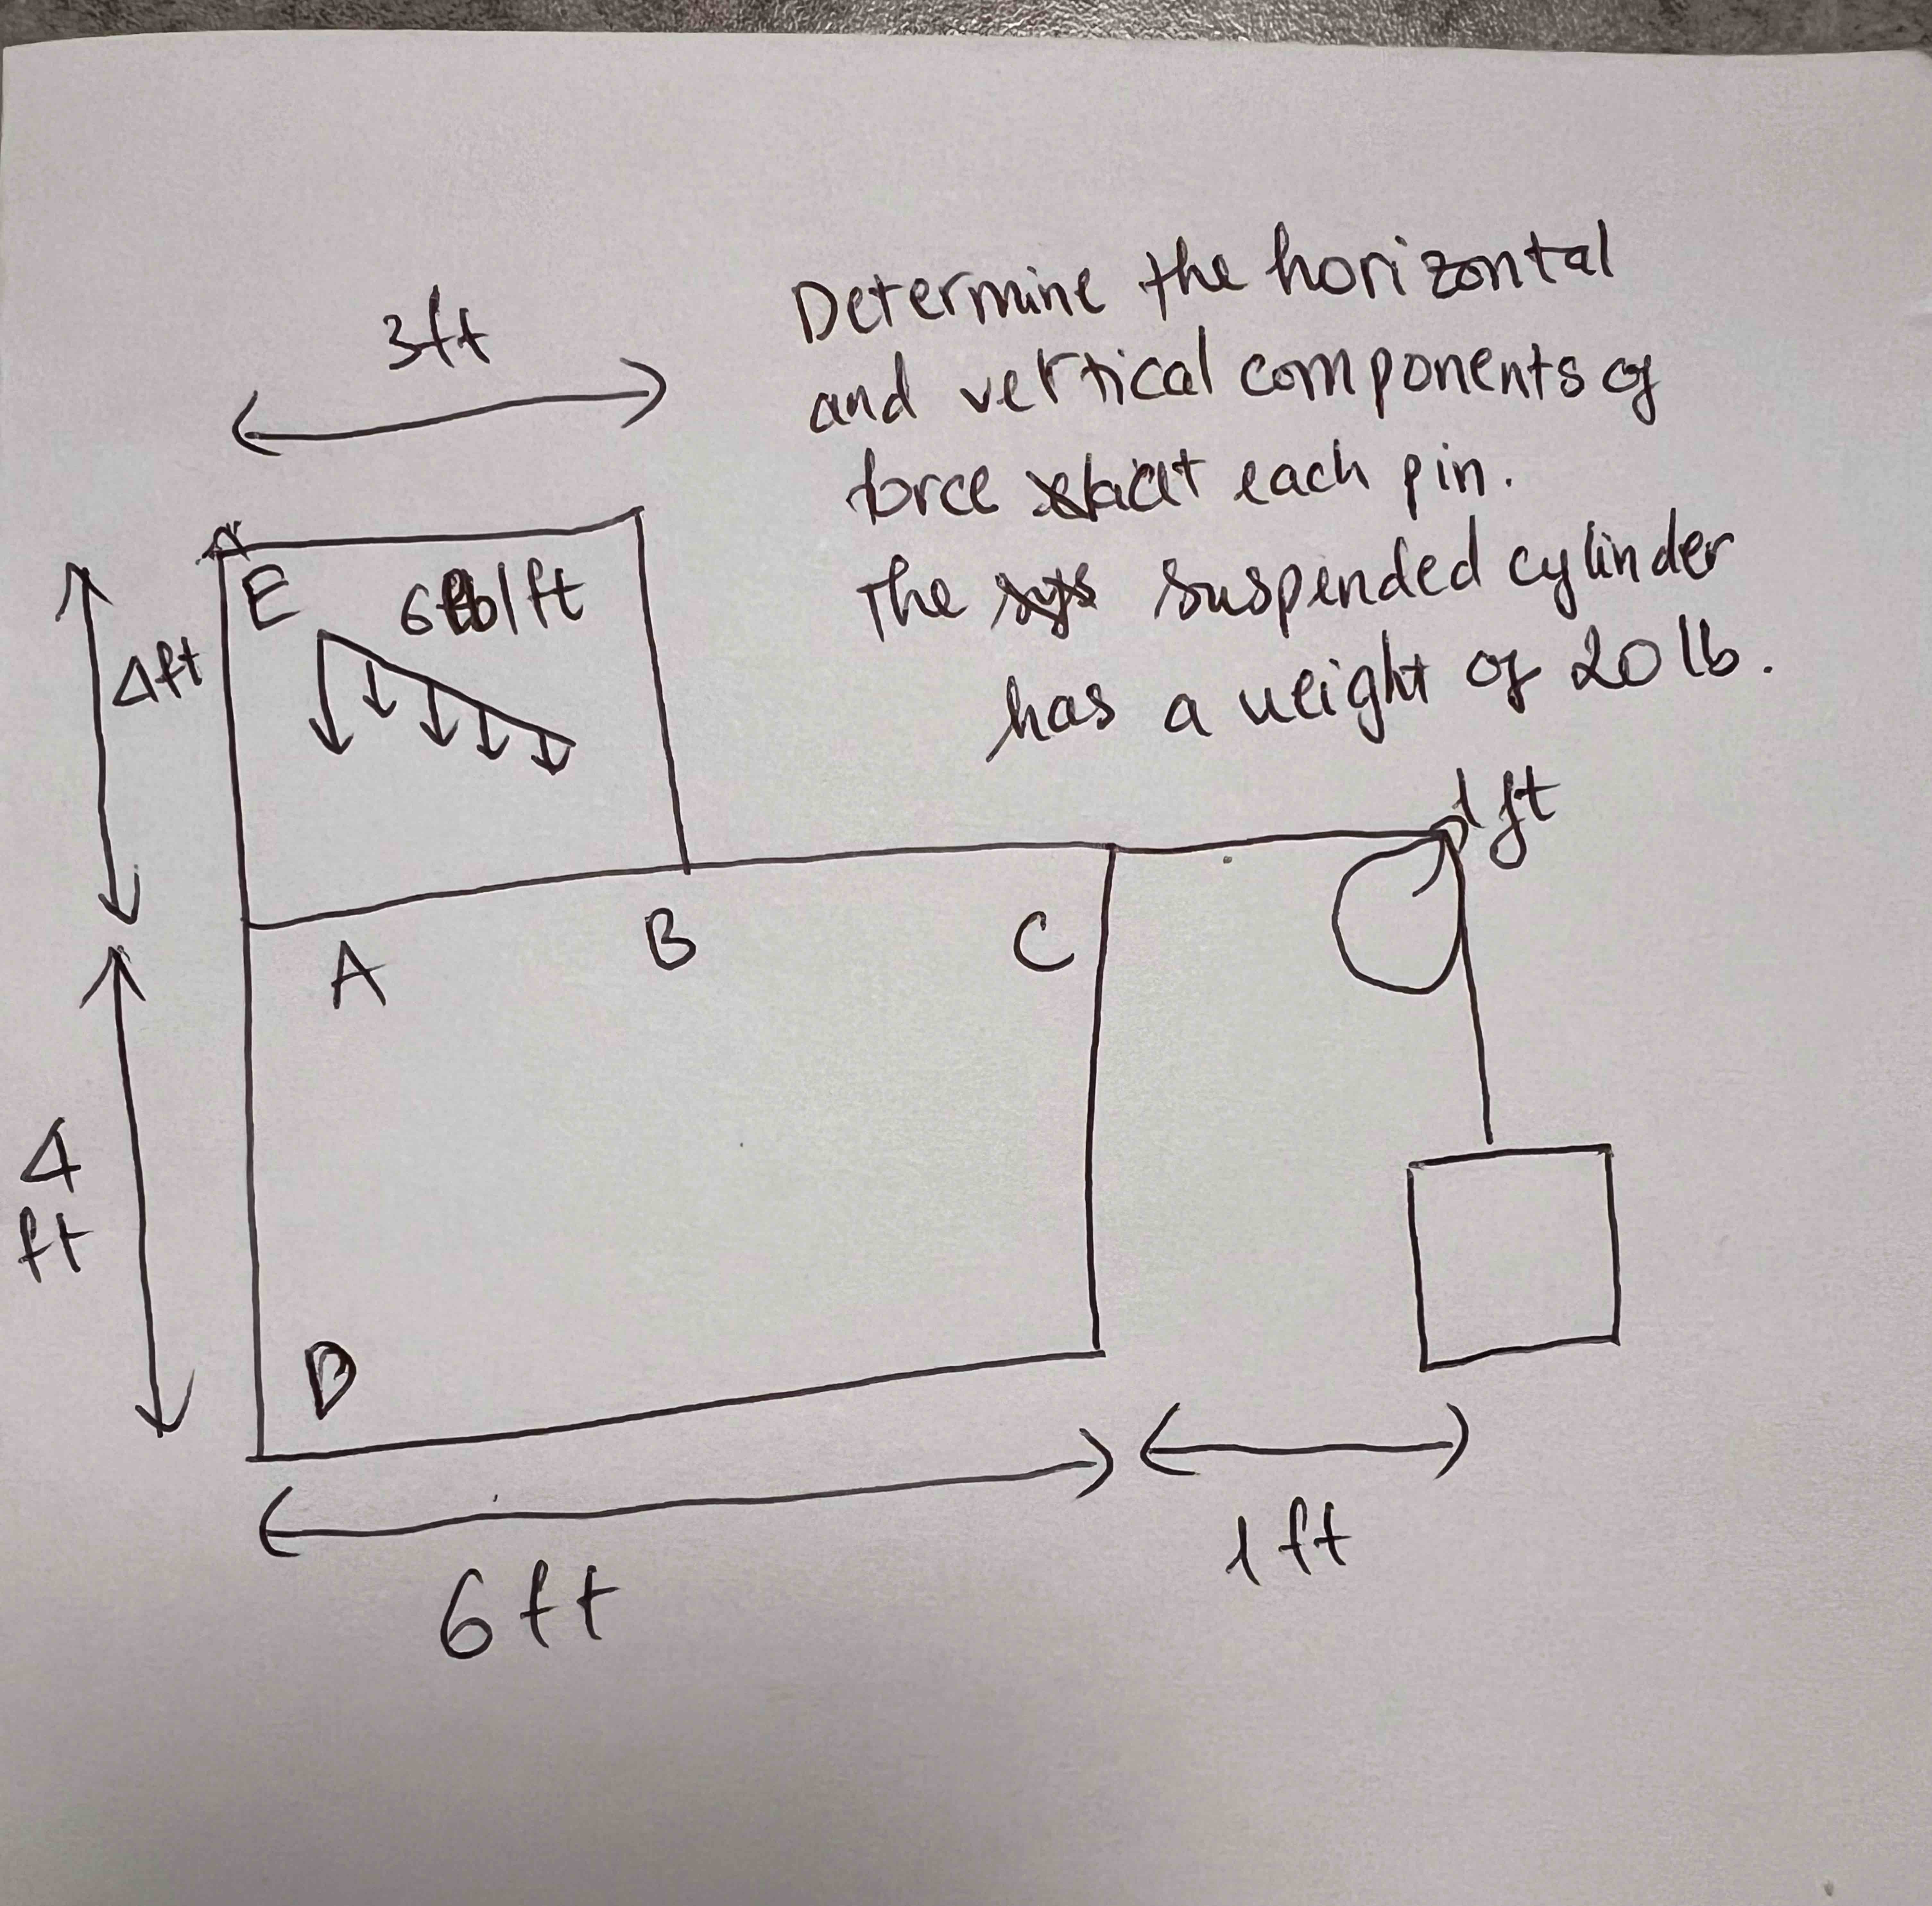 3ft
Determine the horizontal
and vertical components of
force at each pin.
The suspended cylinder
has a weight of 20 lb.
E
6lb/ft
4ft
1ft
A
B
C
4
ft
D
6 ft
1 ft